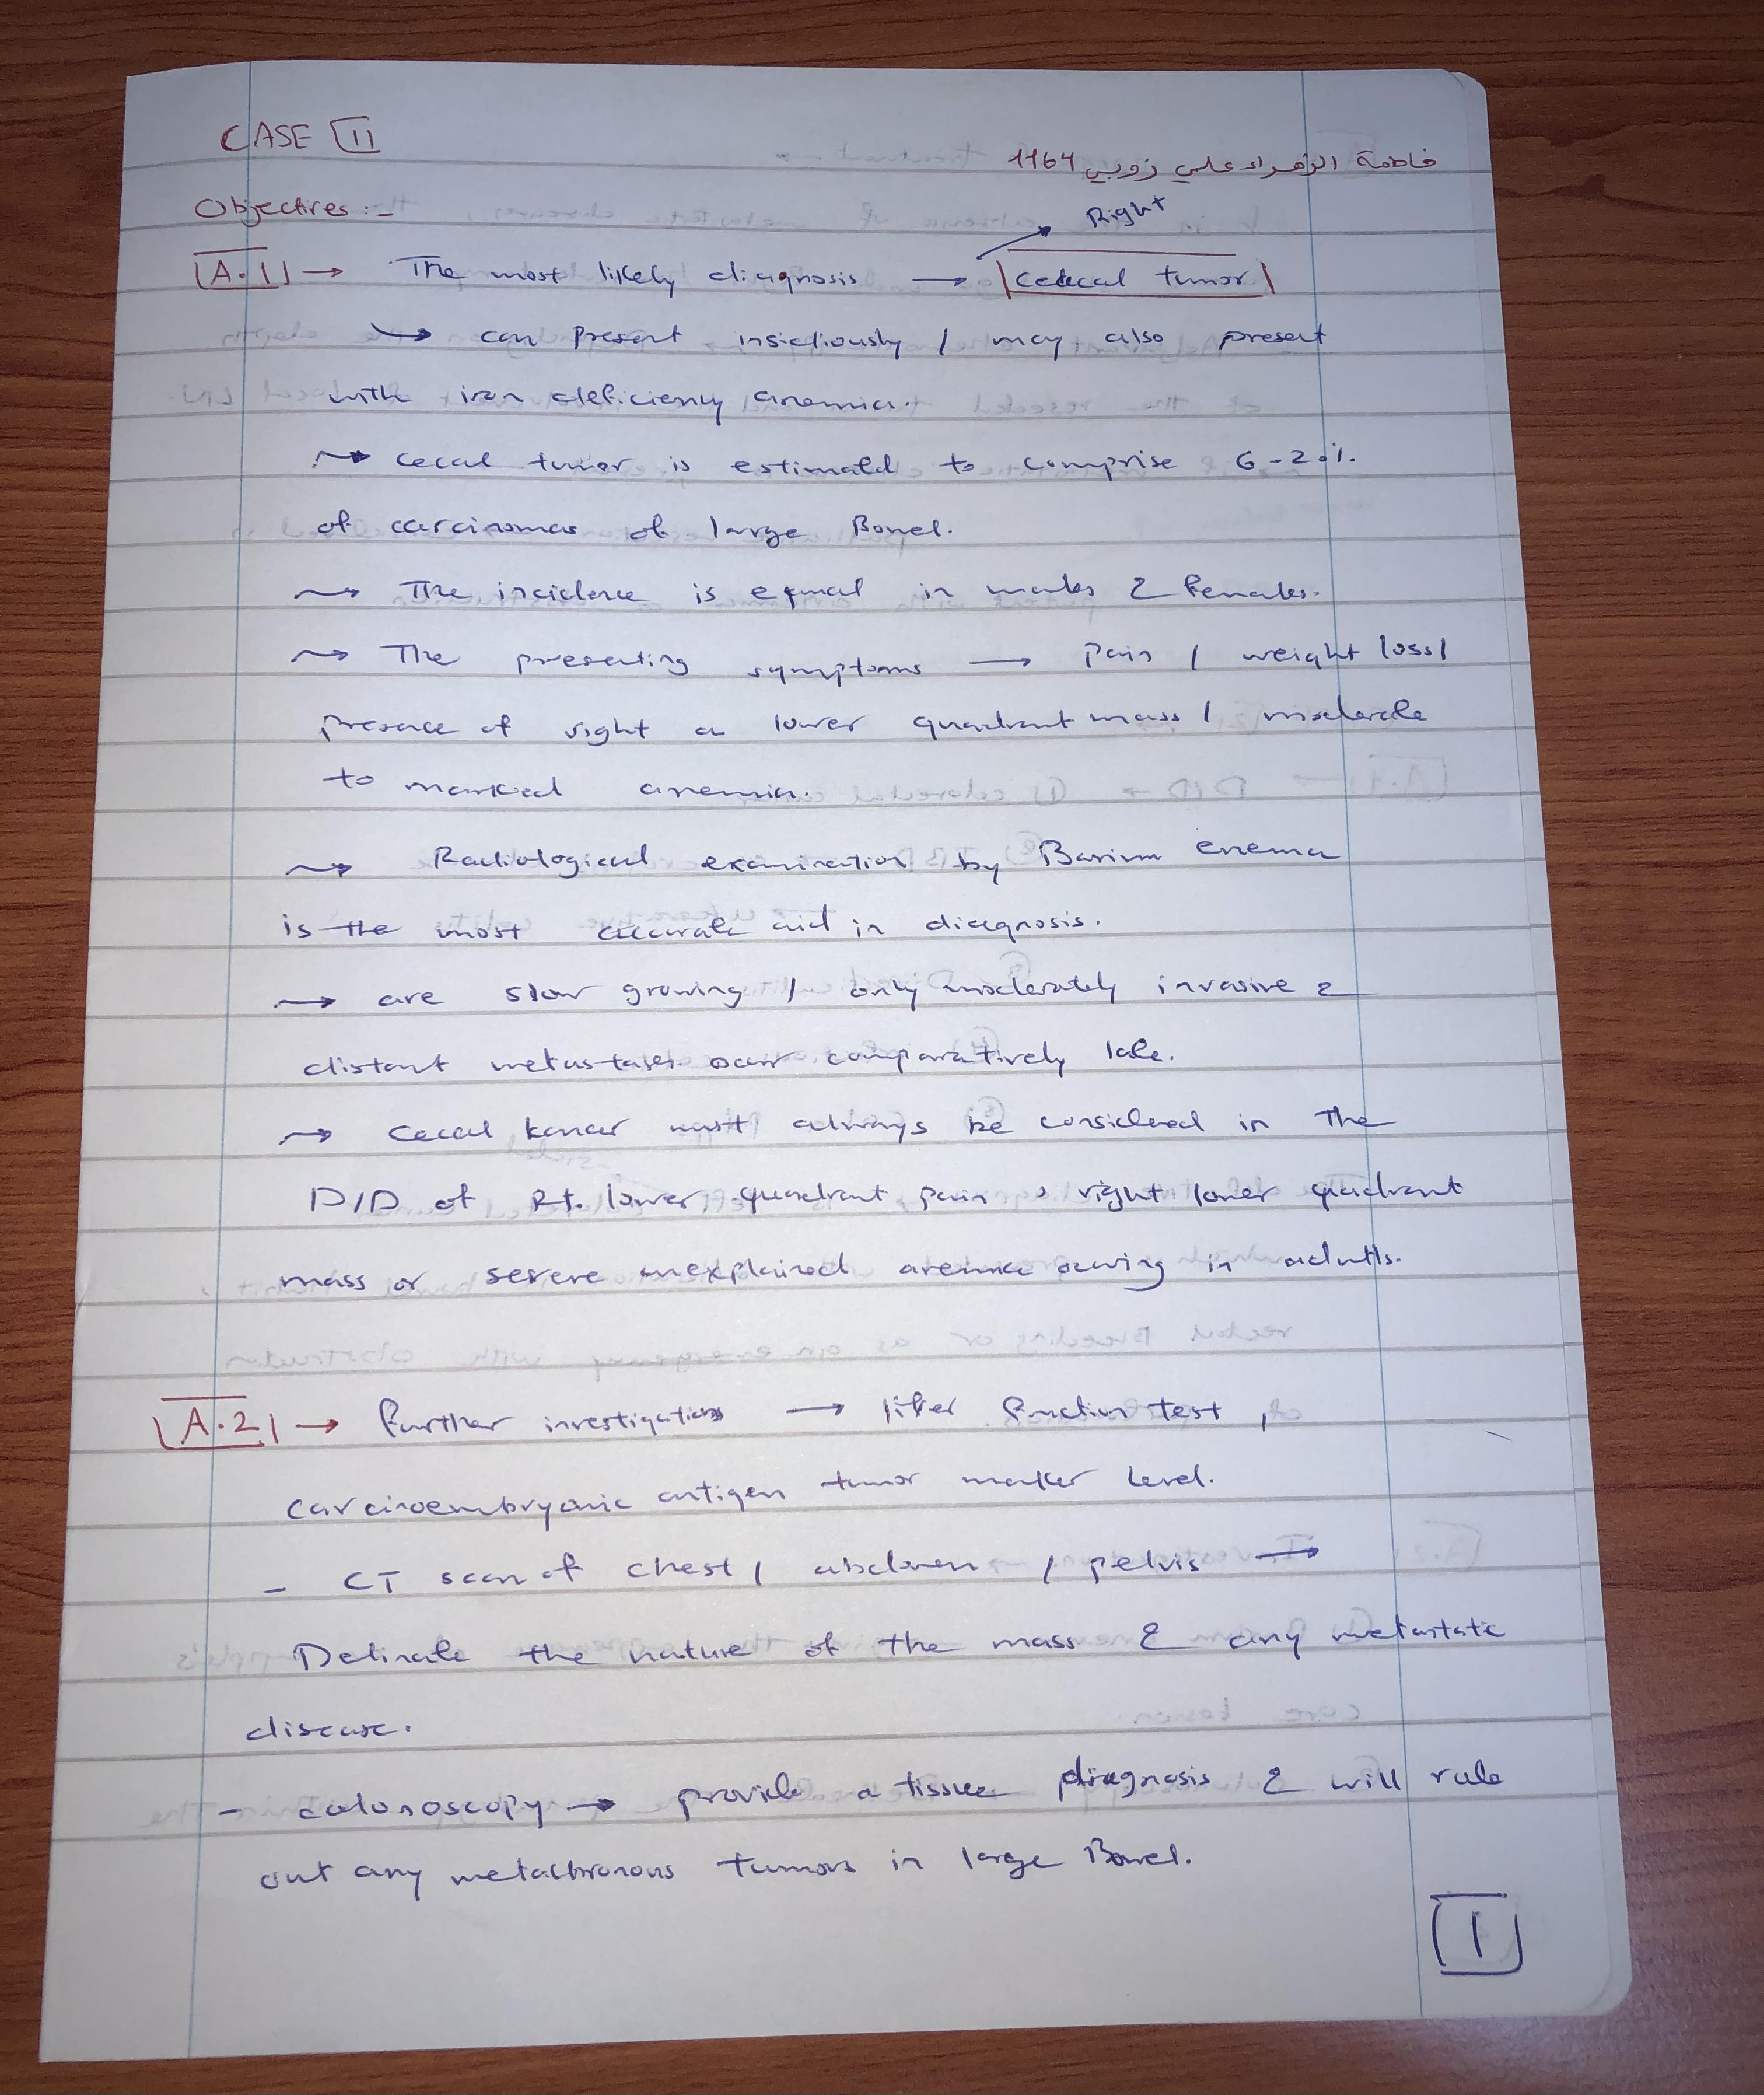 CASE 11
فاطمة الزهراء علي زوبي 1164
Objectives :-
Right
A.1 → The most likely diagnosis → cecal tumor
→ can present insidiously / may also present
with iron deficiency anemia.
→ cecal tumor is estimated to comprise 6-20%
of carcinomas of large Bowel.
→ The incidence is equal in males & females.
→ The presenting symptoms → pain / weight loss /
presence of right a lower quadrant mass / moderate
to marked anemia.
→ Radiological examination by Barium enema
is the most accurate aid in diagnosis.
→ are slow growing / only moderately invasive &
distant metastases occur comparatively late.
→ Cecal kancer must always be considered in the
D/D of Rt. lower quadrant pain, right lower quadrant
mass or severe unexplained anemia occuring in adults.
A.2 → Further investigations → lifer function test,
carcinoembryonic antigen tumor marker Level.
- CT scan of chest / abdomen / pelvis →
Delinate the nature of the mass & any metastatic
disease.
- colonoscopy → provide a tissue diagnosis & will rule
out any metachronous tumors in large Bowel.
1